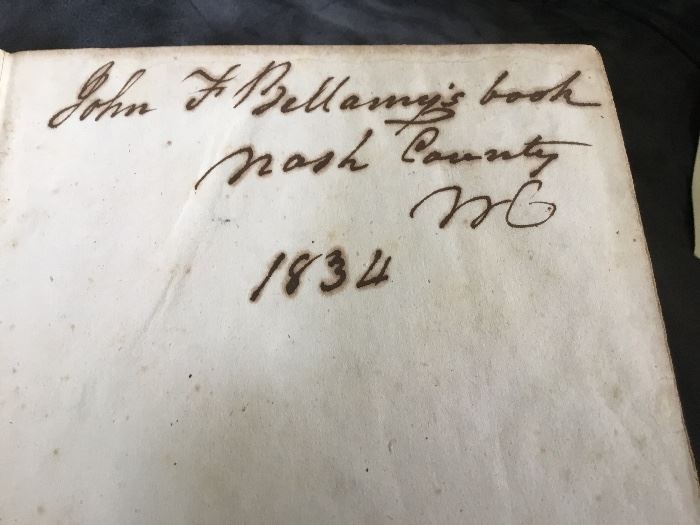 John F Bellamy's book
Nash County
NC
1834